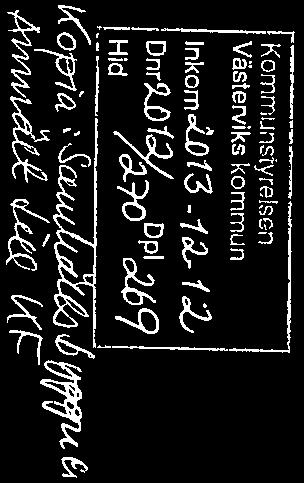 Kommunstyrelsen
Västerviks kommun
Inkom 2013-12-12
Dnr 2012/270 Dpl 269
Hid
Kopia: Samhällsbyggnad
Anmäld till KF